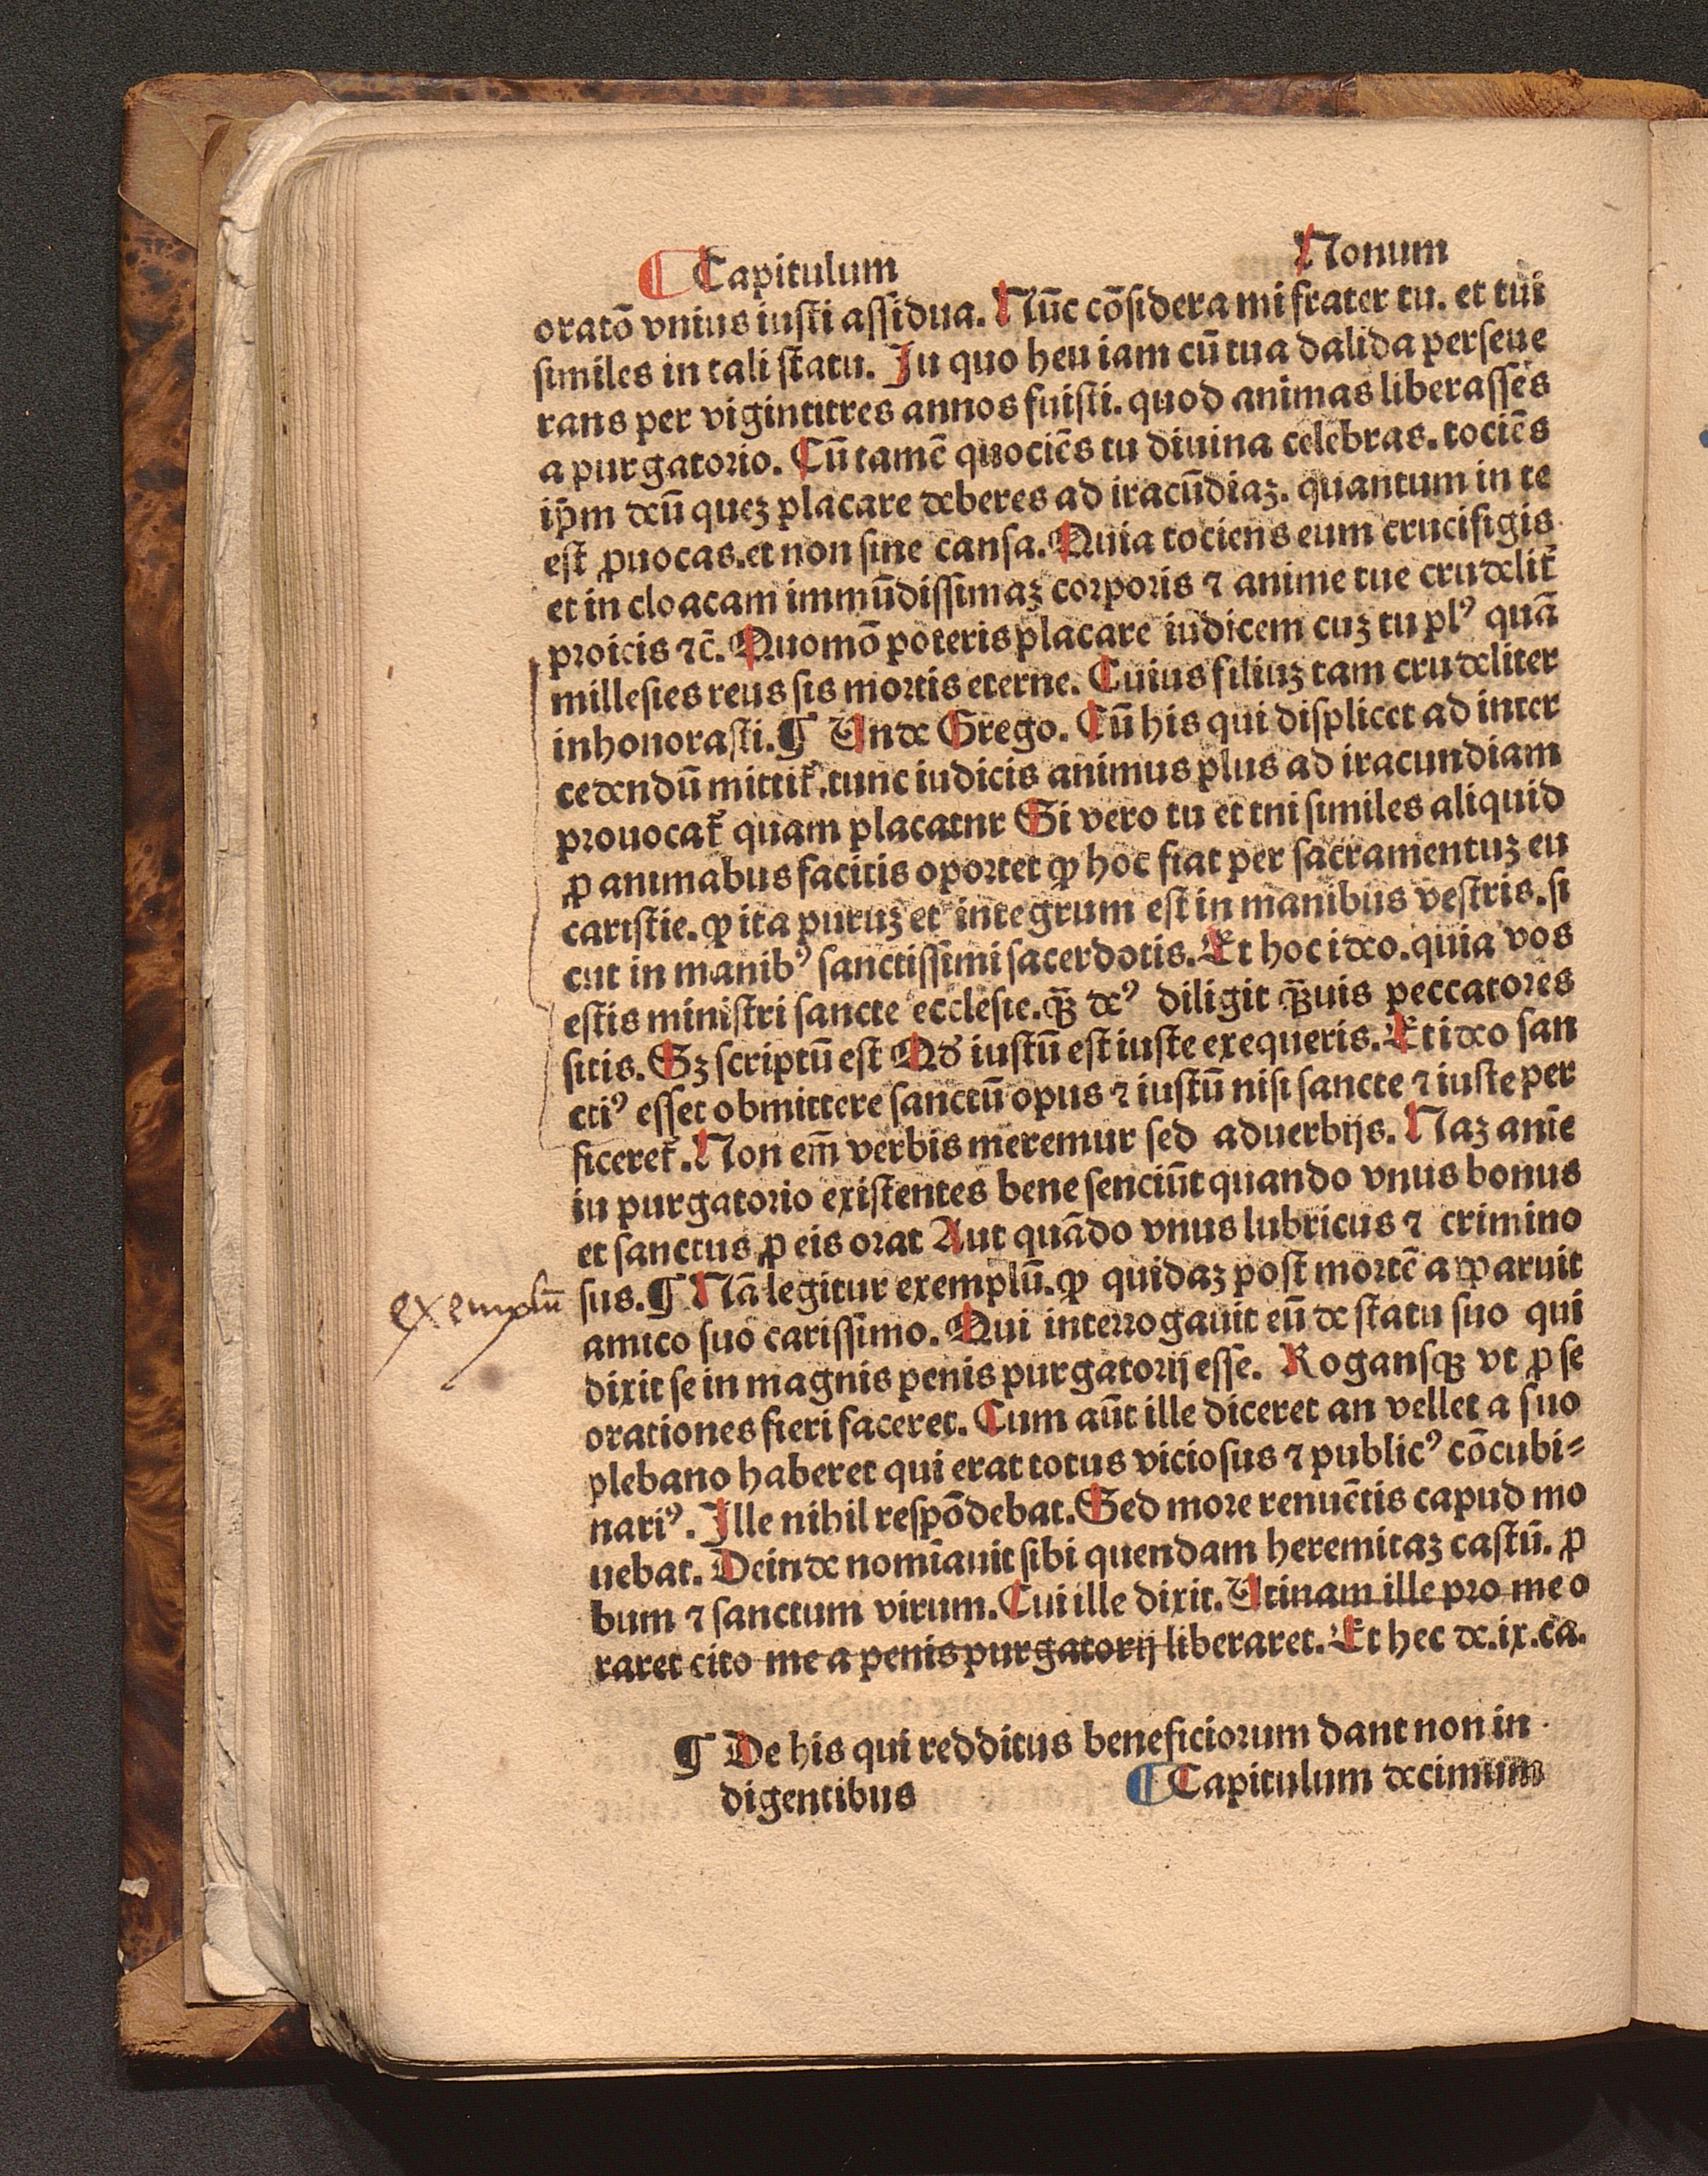 ¶ Capitulum Nonum
oratō vnius iusti aſſidua. Nūc cōſidera mi frater tu. et tui
ſimiles in tali ſtatu. Iu quo heu iam cū tua dalida perſeue
rans per vigintitres annos fuiſti. quod animas liberaſſes
a purgatorio. Cū tamē quociēs tu diuina celebras. tociēs
ip̄m deū quez placare deberes ad iracūdiaz. quantum in te
eſt ꝓuocas. et non ſine canſa. Quia tociens eum crucifigis
et in cloacam immūdiſſimaz corporis ⁊ anime tue crudelit̄
proicis ⁊c̄. Quomō poteris placare iudicem cuz tu plꝰ quā
milleſies reus ſis mortis eterne. Cuius filiuz tam crudeliter
inhonoraſti. ¶ Unde Grego. Cū his qui diſplicet ad inter
cedendū mittit̄. tunc iudicis animus plus ad iracundiam
prouocat̄ quam placatnr Si vero tu et tni ſimiles aliquid
ꝓ animabus facitis oportet ꝙ hoc fiat per ſacramentuz eu
cariſtie. ꝙ ita puruz et integrum eſt in manibus veſtris. ſi
cut in manibꝰ ſanctiſſimi ſacerdotis. Et hoc ideo. quia vos
eſtis miniſtri ſancte eccleſie. qꝫ̄ deꝰ diligit qꝫ̄uis peccatores
ſitis. Sz ſcriptū eſt Qd̓ iuſtū eſt iuſte exequeris. Et ideo ſan
ctiꝰ eſſet obmittere ſanctū opus ⁊ iuſtū niſi ſancte ⁊ iuſte per
ficeret̄. Non em̄ verbis meremur ſed aduerbijs. Naz anīe
iu purgatorio exiſtentes bene ſenciūt quando vnus bonus
et ſanctus ꝓ eis orat Aut quādo vnus lubricus ⁊ crimino
exemplū
ſus. ¶ Nā legitur exemplū. ꝙ quidaz poſt mortē apparuit
amico ſuo cariſſimo. Qui interrogauit eū de ſtatu ſuo qui
dixit ſe in magnis penis purgatorij eſſe. Roganſqꝫ vt ꝓ ſe
orationes fieri faceret. Cum aūt ille diceret an vellet a ſuo
plebano haberet qui erat totus vicioſus ⁊ publicꝰ cōcubi⸗
nariꝰ. Ille nihil reſpōdebat. Sed more renuētis capud mo
uebat. Deinde nomīauit ſibi quendam heremitaz caſtū. ꝓ
bum ⁊ ſanctum virum. Cui ille dixit. Utinam ille pro me o
raret cito me a penis purgatorij liberaret. Et hec de. ix. ca.
¶ De his qui redditus beneficiorum dant non in
digentibus ¶ Capitulum decimum